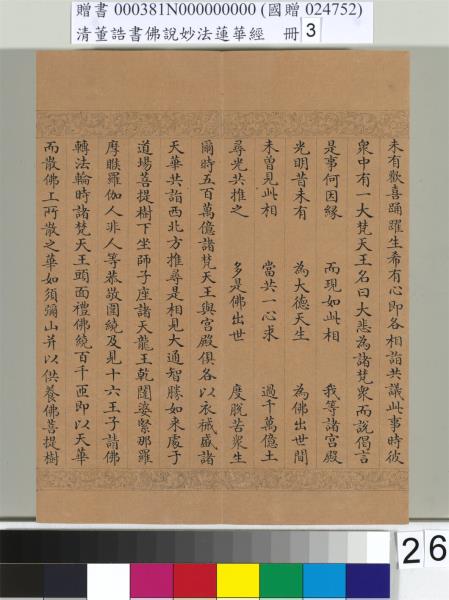 贈書 000381N000000000 (國贈 024752)
清董誥書佛說妙法蓮華經 冊 3
未有歡喜踊躍生希有心即各相詣共議此事時彼
衆中有一大梵天王名曰大悲為諸梵衆而說偈言
是事何因緣 而現如此相 我等諸宮殿
光明昔未有 為大德天生 為佛出世間
未曾見此相 當共一心求 過千萬億土
尋光共推之 多是佛出世 度脫苦衆生
爾時五百萬億諸梵天王與宮殿俱各以衣祴盛諸
天華共詣西北方推尋是相見大通智勝如來處于
道場菩提樹下坐師子座諸天龍王乾闥婆緊那羅
摩睺羅伽人非人等恭敬圍繞及見十六王子請佛
轉法輪時諸梵天王頭面禮佛繞百千匝即以天華
而散佛上所散之華如須彌山并以供養佛菩提樹
26